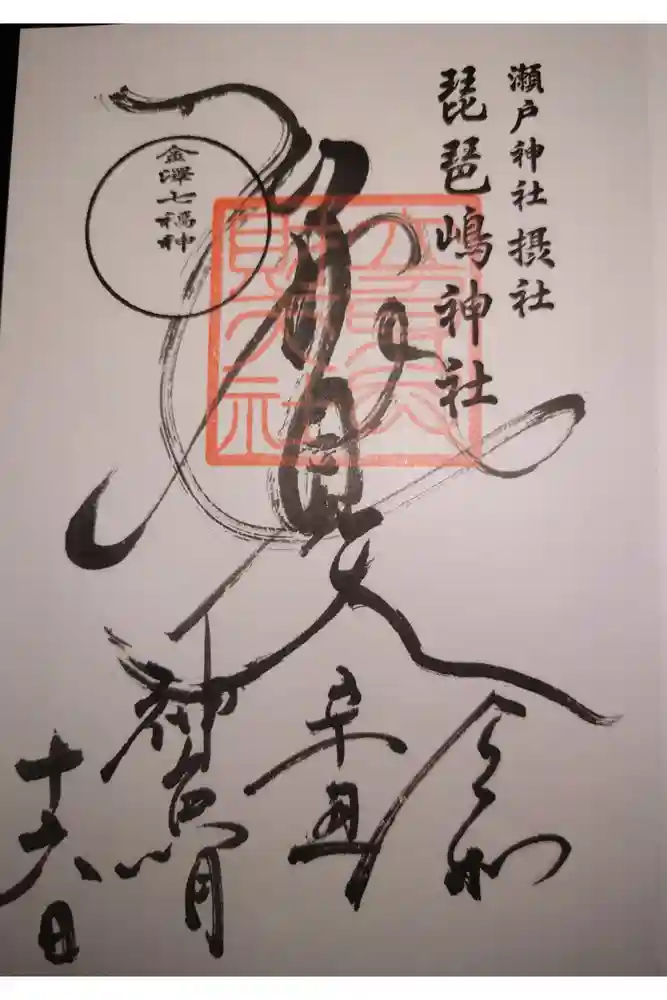 瀬戸神社摂社
琵琶嶋神社
金澤七福神
立身弁
財天社
令和
辛丑
神無月
十六日